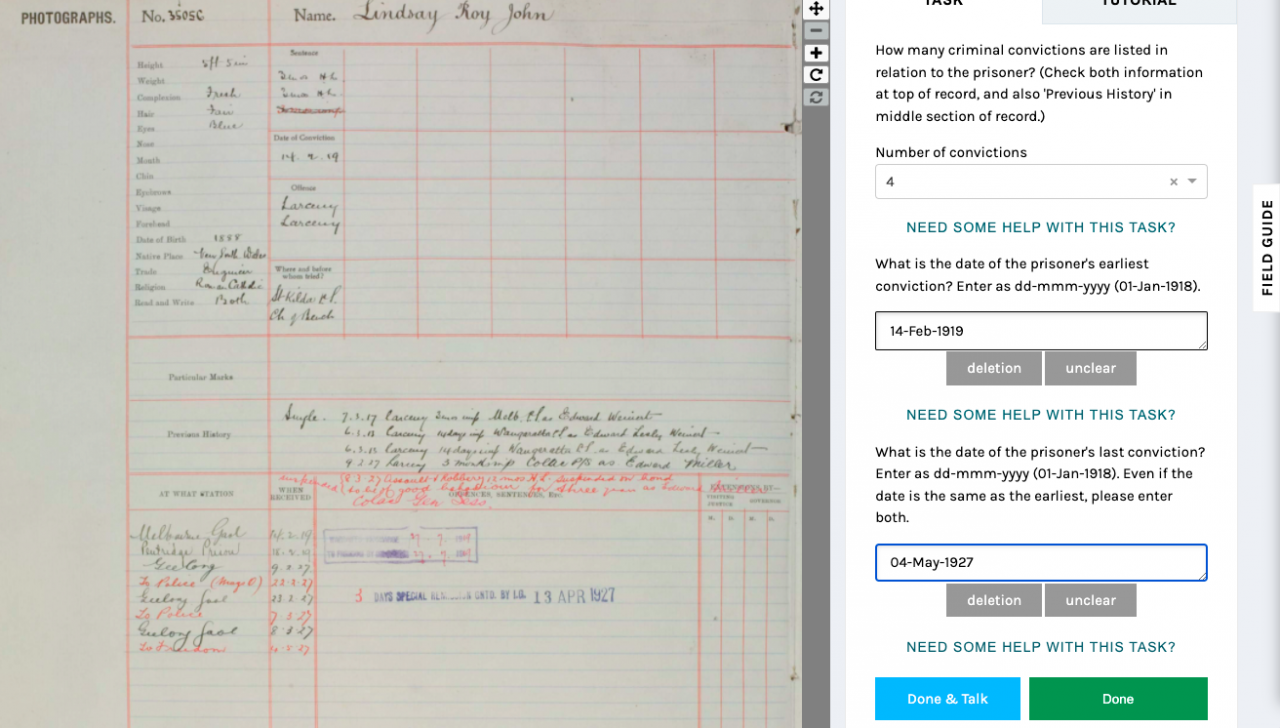 PHOTOGRAPHS.
No. 3505C Name. Lindsay Roy John
Height 5ft 5in
Weight
Complexion Fresh
Hair Fair
Eyes Blue
Nose
Mouth
Chin
Eyebrows
Visage
Forehead
Date of Birth 1888
Native Place New South Wales
Trade Engineer
Religion Roman Catholic
Read and Write Both
Sentence
Date of Conviction
14. 2. 19
Offence
Larceny
Larceny
Where and before whom tried?
St Kilda P.S.
Ch of Bench
Particular Marks
Previous History
Single. 7.3.17 larceny 2mos imp Melb. as Edward Weinert
6.3.18 larceny 14 days imp Wangaratta as Edward Lesly Weinert
6.3.18 larceny 14 days imp Wangaratta as Edward Lesly Weinert
9.2.27 larceny 3 mos imp Colac P/S as Edward Miller
8.3.27 assault & Robbery 12 mos H.L. suspended on bond
to be of good behaviour for three years as Edward
Colac Gen Sess.
AT WHAT STATION
WHEN RECEIVED
OFFENCES, SENTENCES, Etc.
VISITING JUSTICE
GOVERNOR
M. D. M. D.
Melbourne Gaol 14.2.19
Pentridge Prison 15.2.19
Geelong 9.2.27
To Police 22.2.27
Geelong Gaol 23.2.27
To Police 7.3.27
Geelong Gaol 8.3.27
To Freedom 4.5.27
3 DAYS SPECIAL REMISSION GNTD. BY I.G. 13 APR 1927
TASK
TUTORIAL
How many criminal convictions are listed in
relation to the prisoner? (Check both information
at top of record, and also 'Previous History' in
middle section of record.)
Number of convictions
4 ×
NEED SOME HELP WITH THIS TASK?
What is the date of the prisoner's earliest
conviction? Enter as dd-mmm-yyyy (01-Jan-1918).
14-Feb-1919
deletion unclear
NEED SOME HELP WITH THIS TASK?
What is the date of the prisoner's last conviction?
Enter as dd-mmm-yyyy (01-Jan-1918). Even if the
date is the same as the earliest, please enter
both.
04-May-1927
deletion unclear
NEED SOME HELP WITH THIS TASK?
Done & Talk Done
FIELD GUIDE